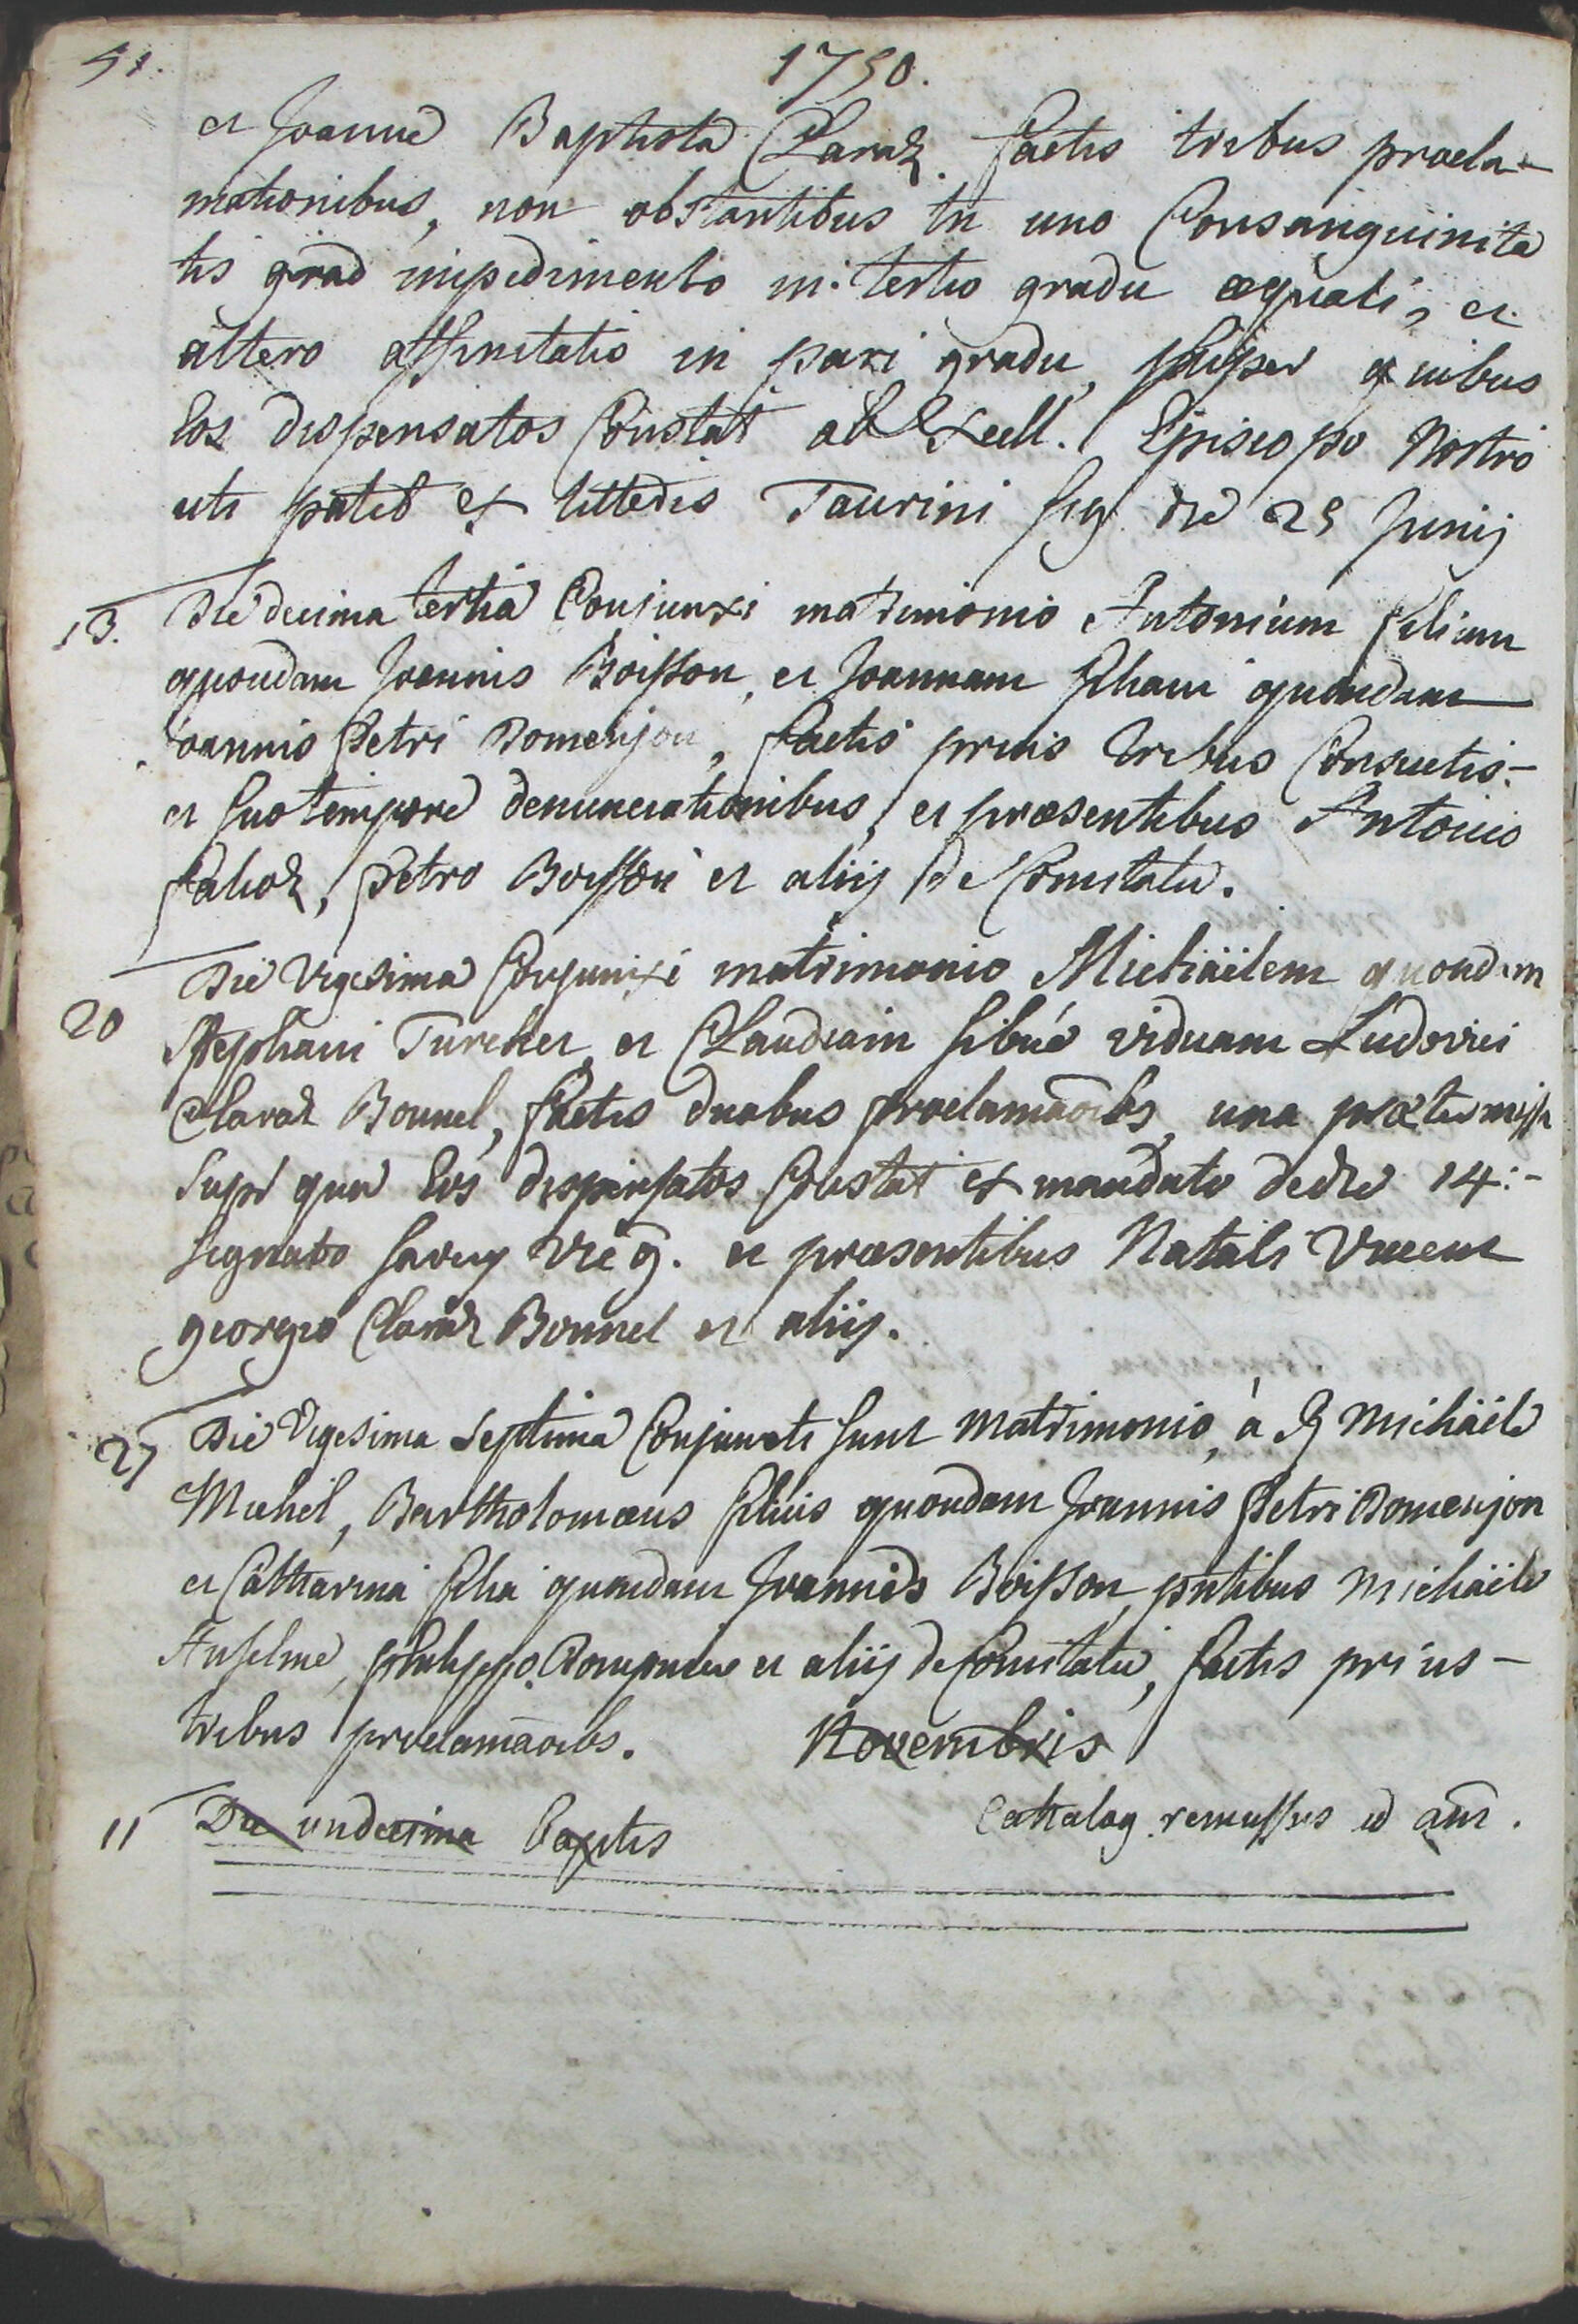 51.
1750.
et Joanne Baptista Claraz. factis tribus procla-
mationibus, non obstantibus tn uno Consanguinita
tis grad impedimento in tertio gradu æquali, et
altero affinitatis in pari gradu, super quibus
Eos dispensatos Constat ab Excell. Episcopo Nostro
uti patet ex litteris Taurini sig die 25 Junij
13. Die decima tertia Conjunxi matrimonio Antonium filium
quondam Joannis Boisson, et Joannam filiam quondam
Joannis Petri Domenjon, factis prius tribus Consuetis
et suo tempore denunciationibus, et præsentibus Antonio
falioz, Petro Boisson et aliij de Comitatu.
20 Die Vigesima Conjunxi matrimonio Michäëlem quondam
Stephani Turcker, et Claudiam sibué viduam Ludovici
Claraz Bonnel, factis duabus proclamãoibs, una prætermissa
super qua Eos dispensatos Constat ex mandato de die 14:-
signato Vic g. et præsentibus Natali Vincent
georgio Claraz Bonnel et aliij.
27 Die Vigesima Septima Conjuncti sunt Matrimonio, à R Michäële
Michel, Bartholomæus filius quondam Joannis Petri Domenjon
et Catharina filia quondam Joannis Boisson, pntibus Michäële
Anselme, philippo et aliij de Comitatu, factis prius -
tribus proclamãoibs. Novembris
11 Die undecima Captis
Cathalog. remissus ad